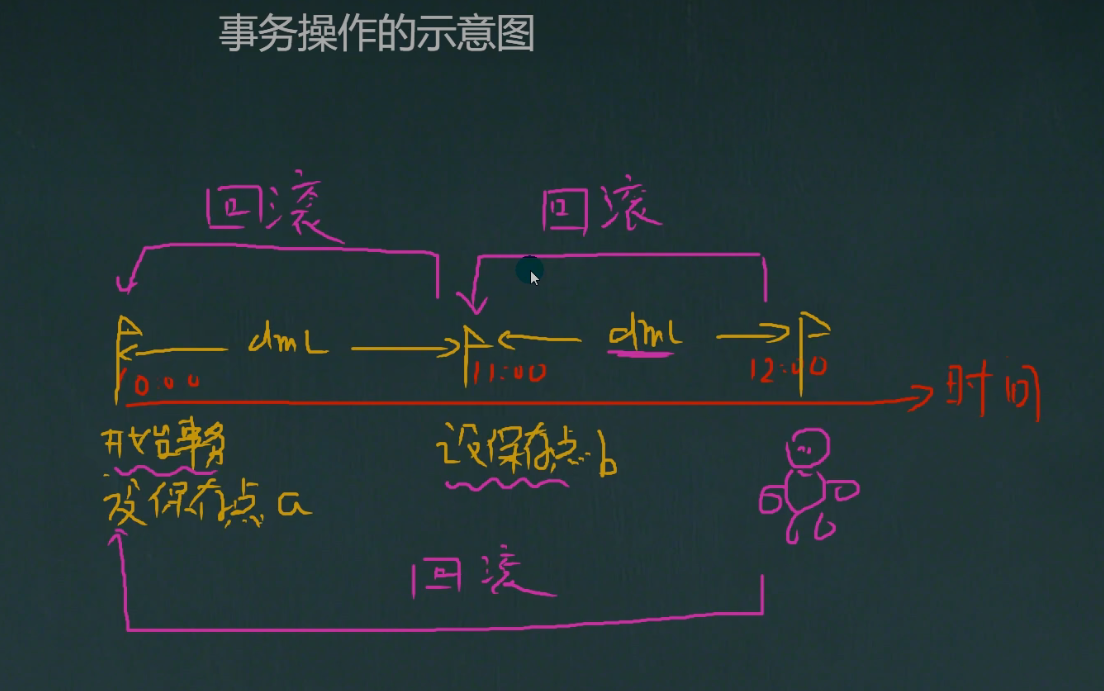 事务操作的示意图
回滚 回滚
dml dml
10:00 11:00 12:00 时间
开始事务 设保存点b
设保存点a
回滚